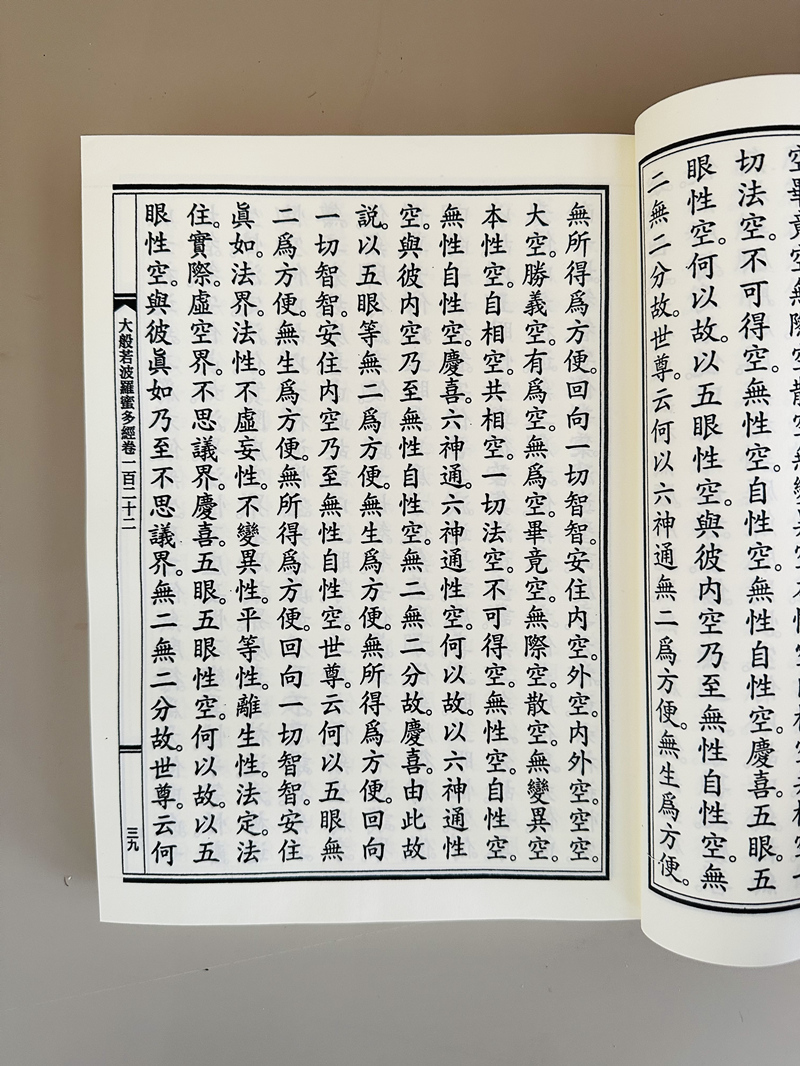 切法空。不可得空。無性空。自性空。無性自性空。慶喜。五眼。五
眼性空。何以故。以五眼性空。與彼内空乃至無性自性空。無
二無二分故。世尊。云何以六神通無二爲方便。無生爲方便。
無所得爲方便。回向一切智智。安住内空。外空。内外空。空空。
大空。勝義空。有爲空。無爲空。畢竟空。無際空。散空。無變異空。
本性空。自相空。共相空。一切法空。不可得空。無性空。自性空。
無性自性空。慶喜。六神通。六神通性空。何以故。以六神通性
空。與彼内空乃至無性自性空。無二無二分故。慶喜。由此故
説。以五眼等無二爲方便。無生爲方便。無所得爲方便。回向
一切智智。安住内空乃至無性自性空。世尊。云何以五眼無
二爲方便。無生爲方便。無所得爲方便。回向一切智智。安住
眞如。法界。法性。不虛妄性。不變異性。平等性。離生性。法定。法
住。實際。虛空界。不思議界。慶喜。五眼。五眼性空。何以故。以五
眼性空。與彼眞如乃至不思議界。無二無二分故。世尊。云何
大般若波羅蜜多經卷一百二十二
三九